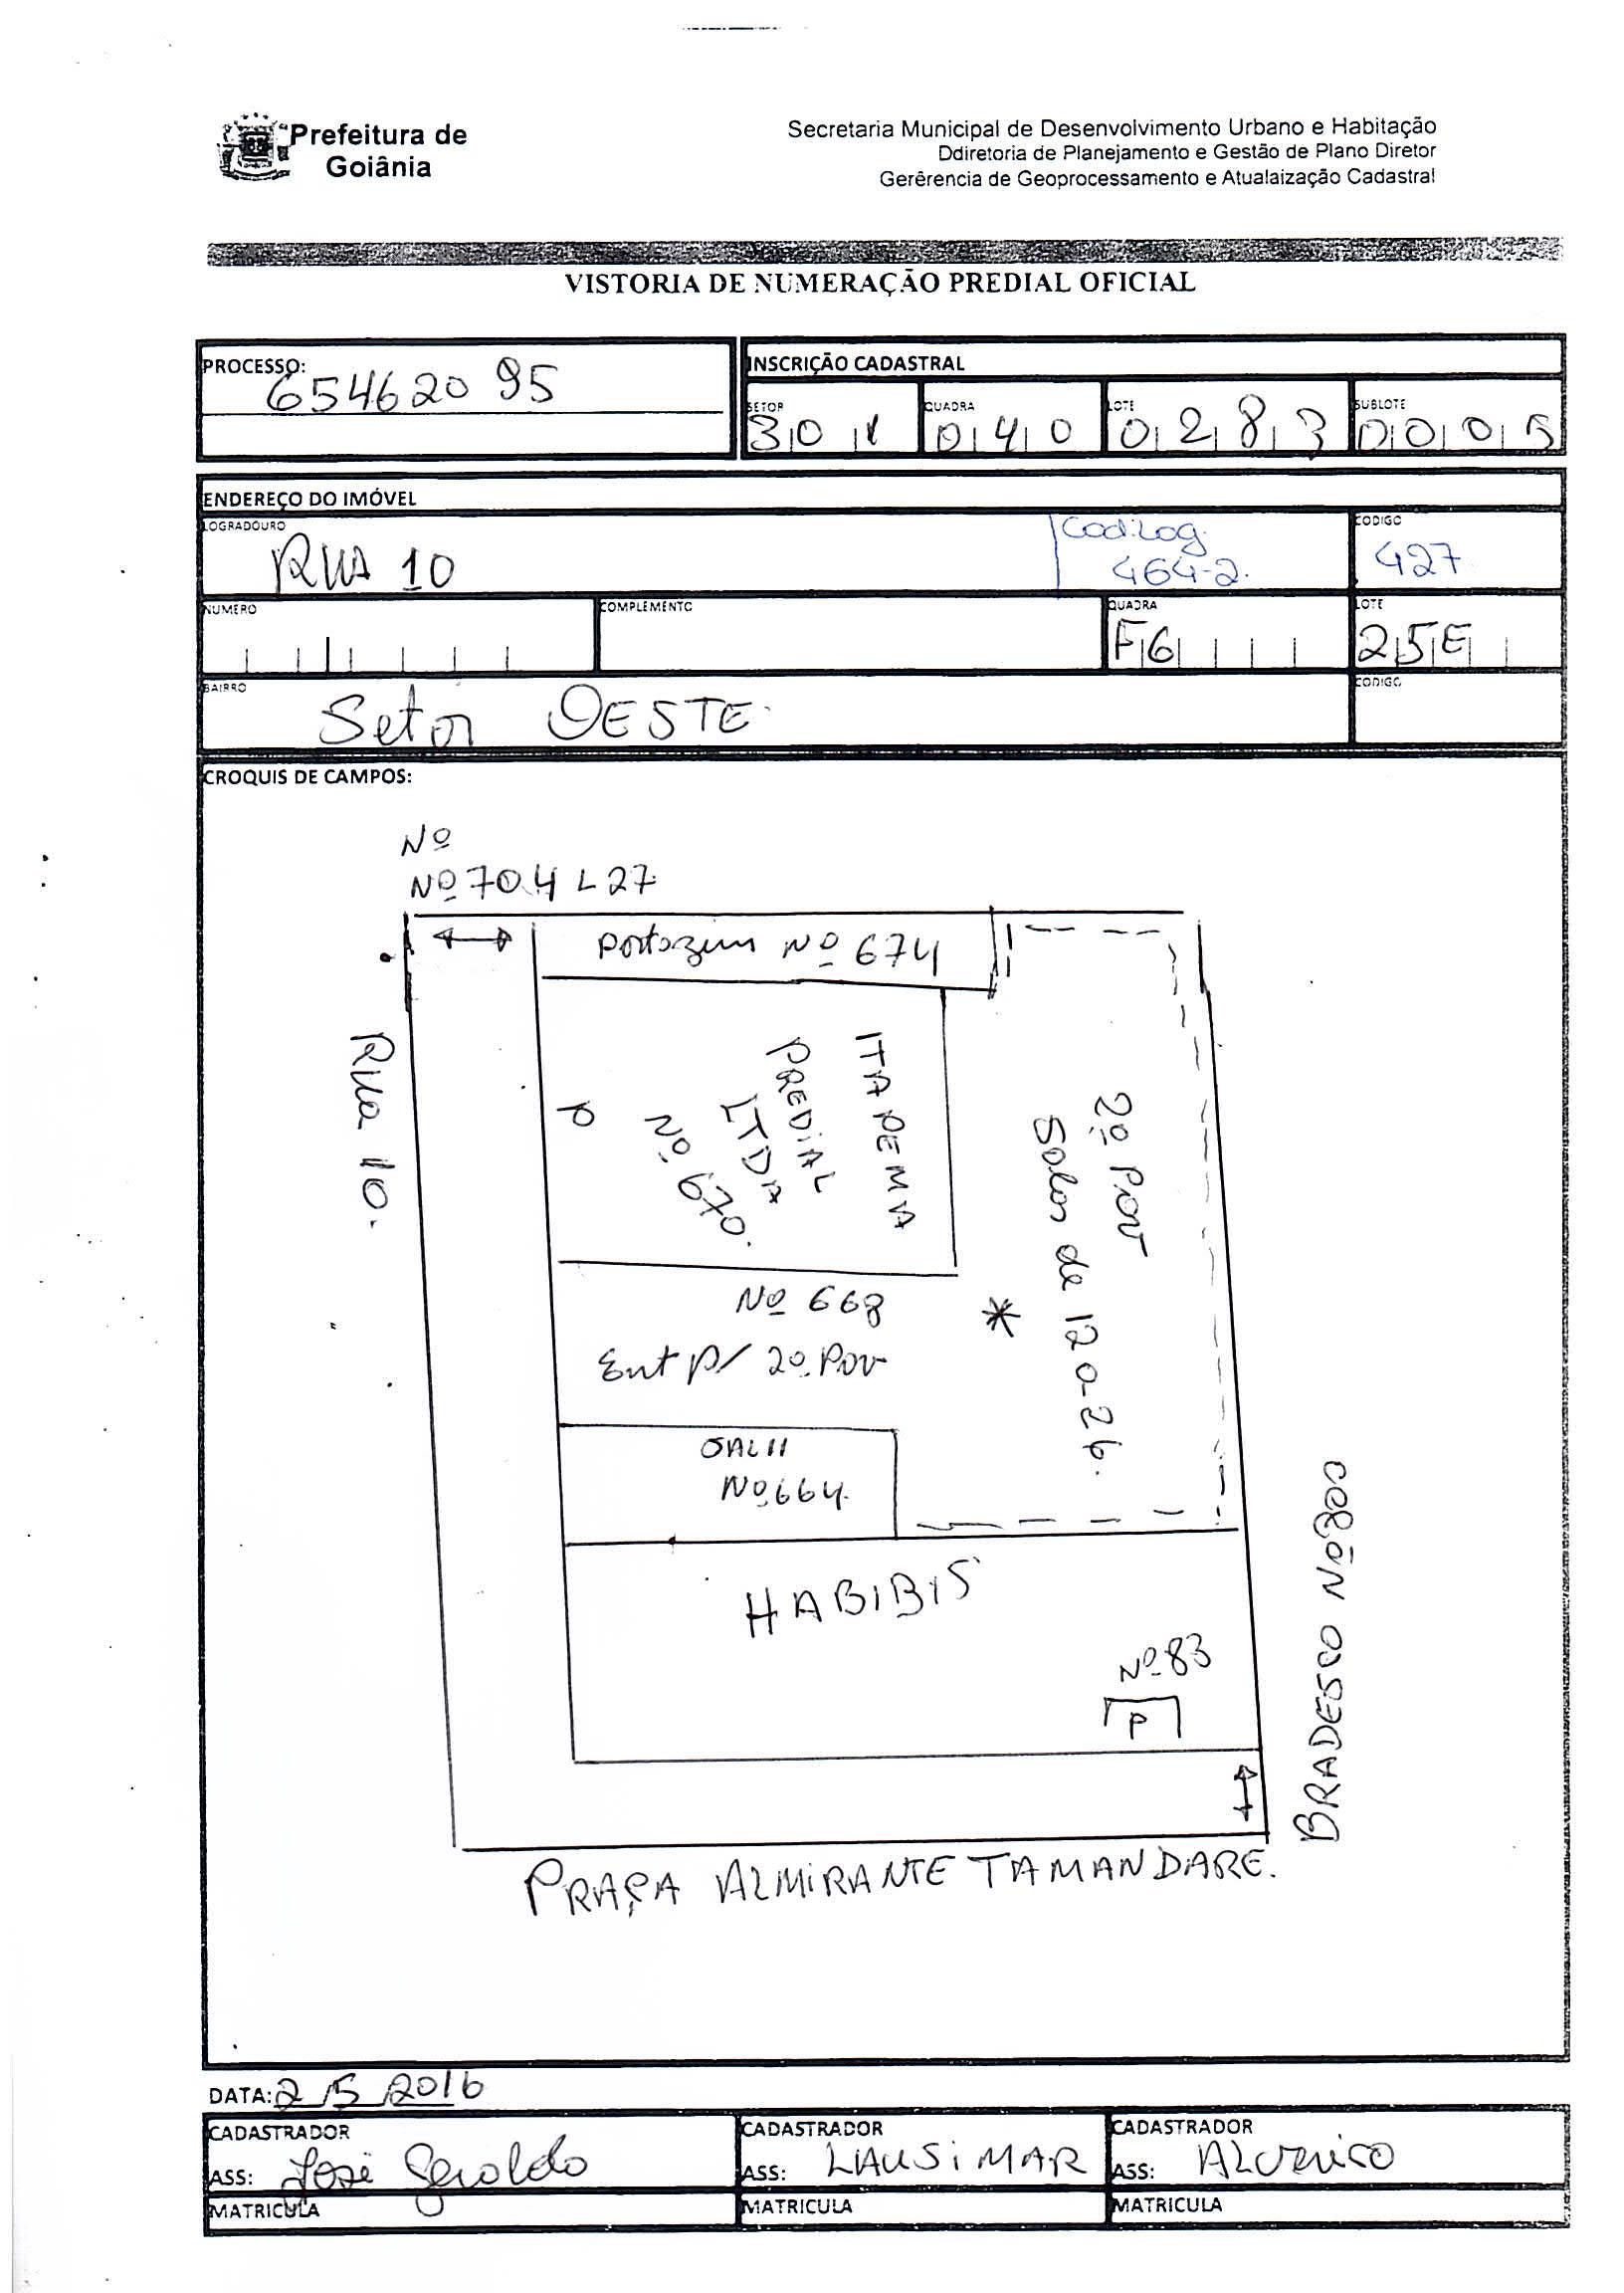 Prefeitura de
Goiânia
Secretaria Municipal de Desenvolvimento Urbano e Habitação
Ddiretoria de Planejamento e Gestão de Plano Diretor
Gerêrencia de Geoprocessamento e Atualaização Cadastral
VISTORIA DE NUMERAÇÃO PREDIAL OFICIAL
PROCESSO:
654620 95
INSCRIÇÃO CADASTRAL
SETOR QUADRA LOTE SUBLOTE
301 040 0283 0005
ENDEREÇO DO IMÓVEL
LOGRADOURO
RUA 10
Cod.Log.
464-2.
CODIGO
427
NUMERO COMPLEMENTO QUADRA LOTE
F6 25E
BAIRRO CODIGO
Setor OESTE
CROQUIS DE CAMPOS:
Nº
Nº 704 L 27
portozim Nº 674
Rua 10.
ITAPEMA
PREDIAL
LTDA
Nº 670.
P
2º Pov
Salas de 12 a 26.
Nº 668
Ent p/ 2º Pov
*
SAL 11
Nº 664.
HABIBIS
Nº 83
P
BRADESCO Nº 800
PRAÇA ALMIRANTE TAMANDARE.
DATA: 2/5/2016
CADASTRADOR CADASTRADOR CADASTRADOR
ASS: José Geraldo ASS: LAUSIMAR ASS:
MATRICULA MATRICULA MATRICULA